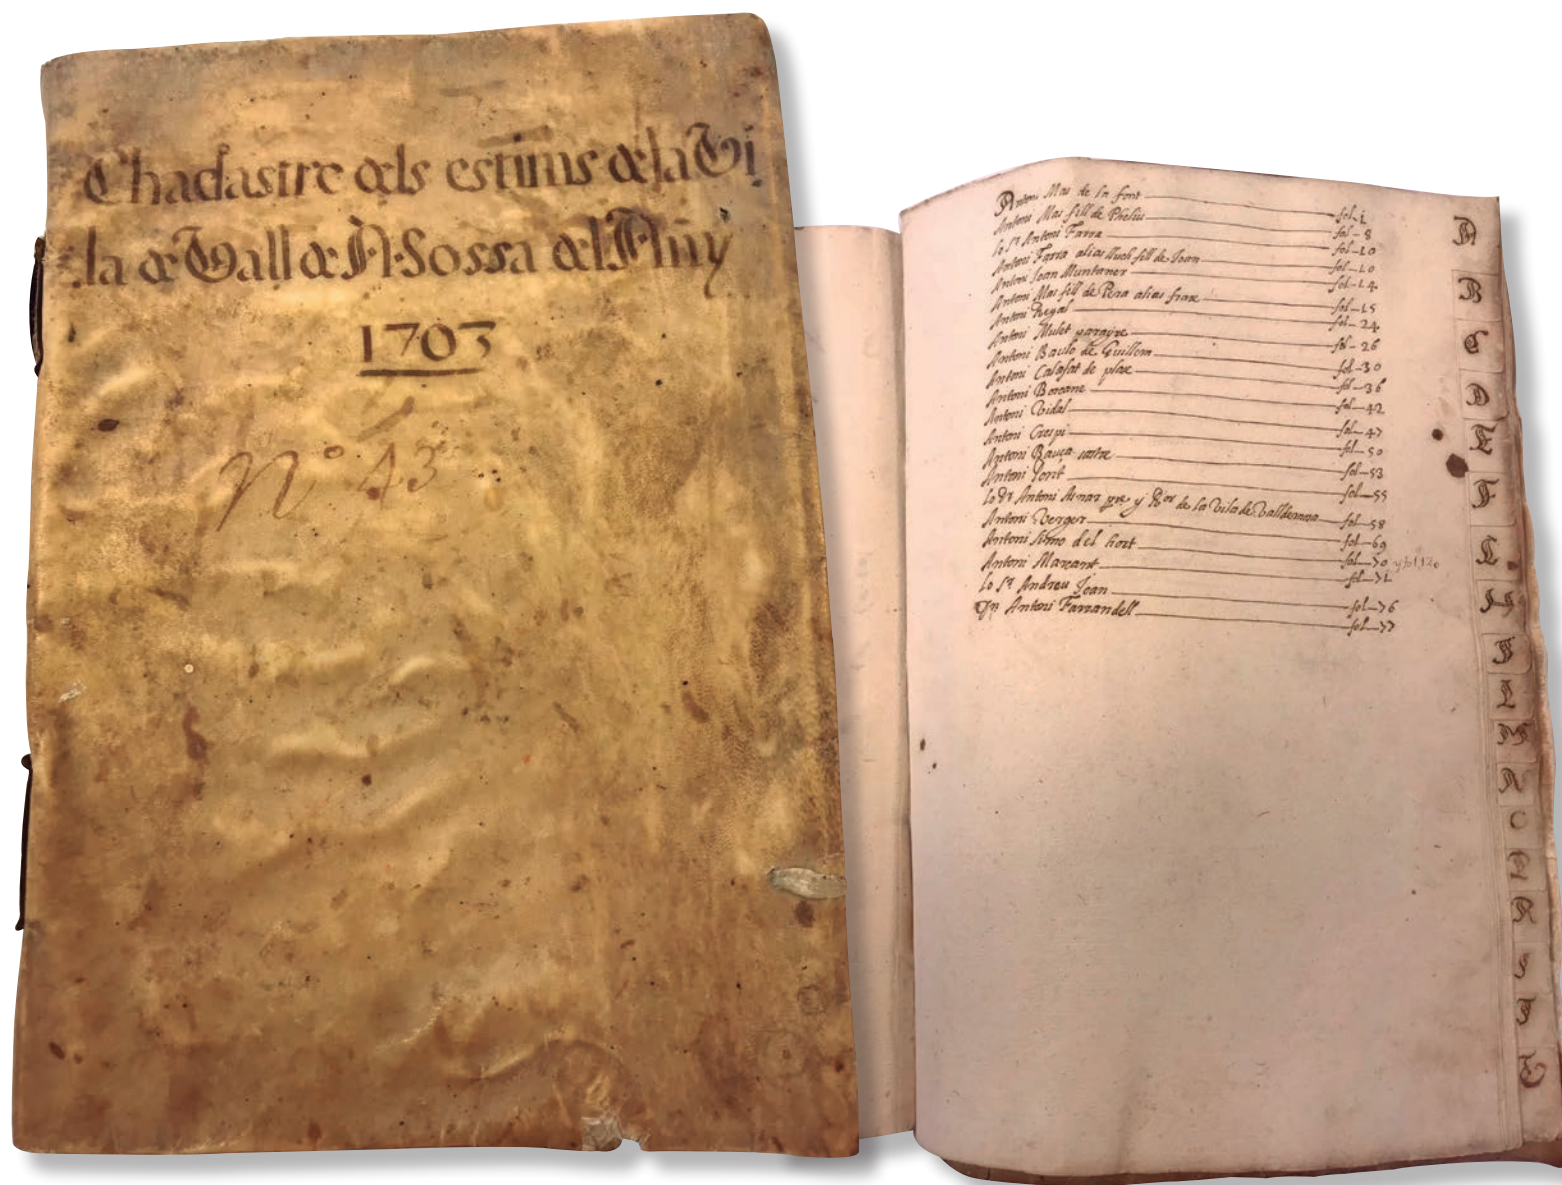 Chadastre dels estims de la Vi
la de Vall de
1703
Nº 43
Antoni Mas de la font fol-1
Antoni Mas fill de Pheliu fol-8
lo Sr Antoni Farra fol-10
Antoni Farra alias lluch fill de Joan fol-10
Antoni Joan Muntaner fol-14
Antoni Mas fill de Pera alias frare fol-15
Antoni Reyal fol-24
Antoni Mulet parayre fol-26
Antoni Baulo de Guillem fol-30
Antoni Calafat de plaxe fol-36
Antoni Borcane fol-42
Antoni Vidal fol-47
Antoni Crespi fol-50
Antoni Bauça fol-53
Antoni Jorit fol-55
lo Dr Antoni pre y Ror de la Vila de Valldemosa fol-58
Antoni Verger fol-69
Antoni Simo del hort fol-70
Antoni Marcant fol-71
lo Sr Andreu Joan fol-76
Antoni Farrandell fol-77
A
B
C
D
E
F
G
H
I
L
M
N
O
P
R
S
T
V